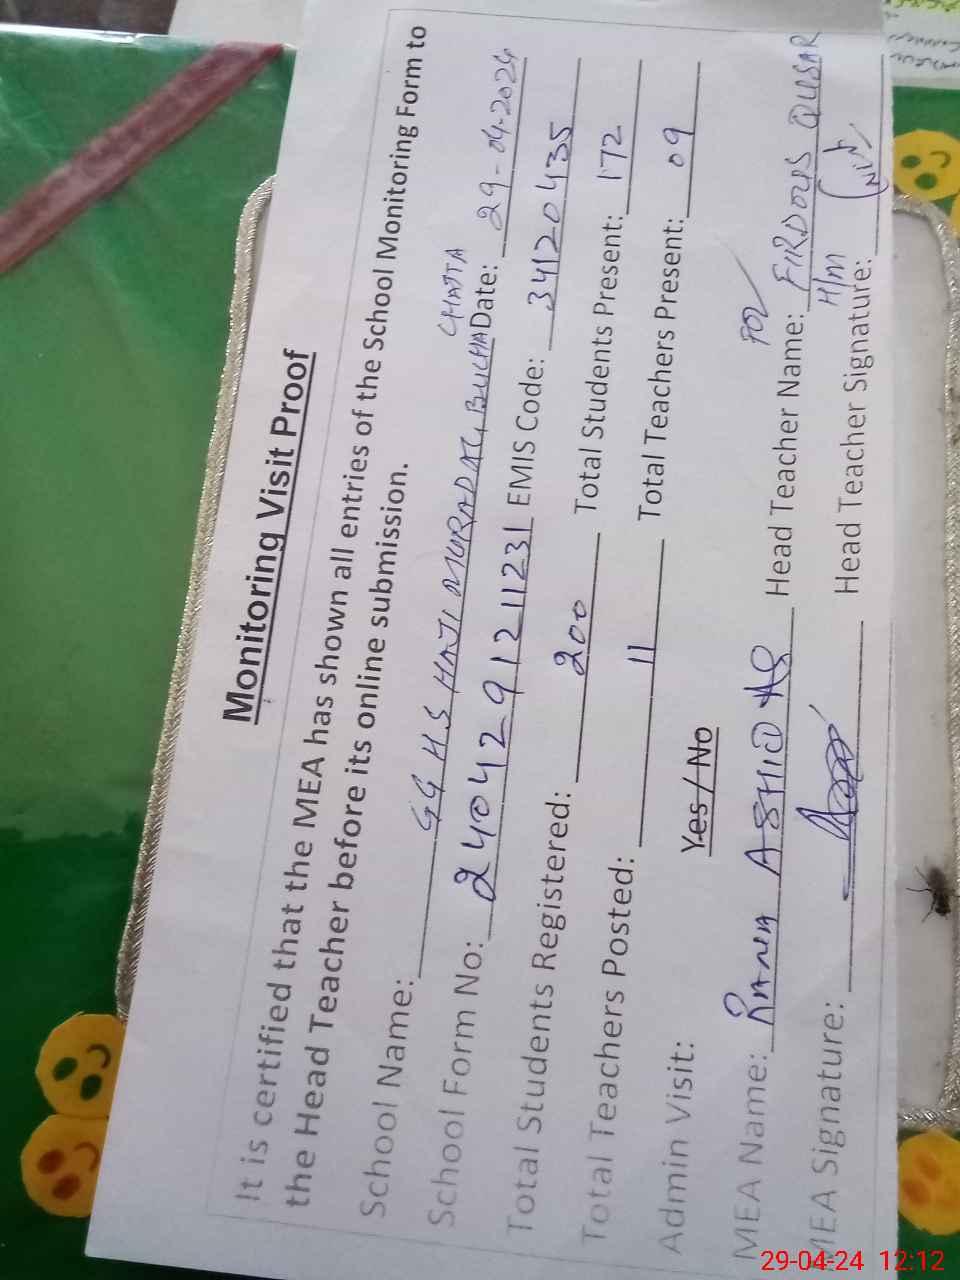 Monitoring Visit Proof
It is certified that the MEA has shown all entries of the School Monitoring Form to
the Head Teacher before its online submission.
School Name: GGHS HAJI MURAD ALI, BUCHA CHATTA Date: 29-04-2024
School Form No: 240429121 1231 EMIS Code: 34120435
Total Students Registered: 200 Total Students Present: 172
Total Teachers Posted: 11 Total Teachers Present: 09
Admin Visit: Yes / No
FOR
MEA Name: RANA ASHIQ Head Teacher Name: FIRDOUS QUSAR
H/M
MEA Signature: Head Teacher Signature:
29-04-24 12:12